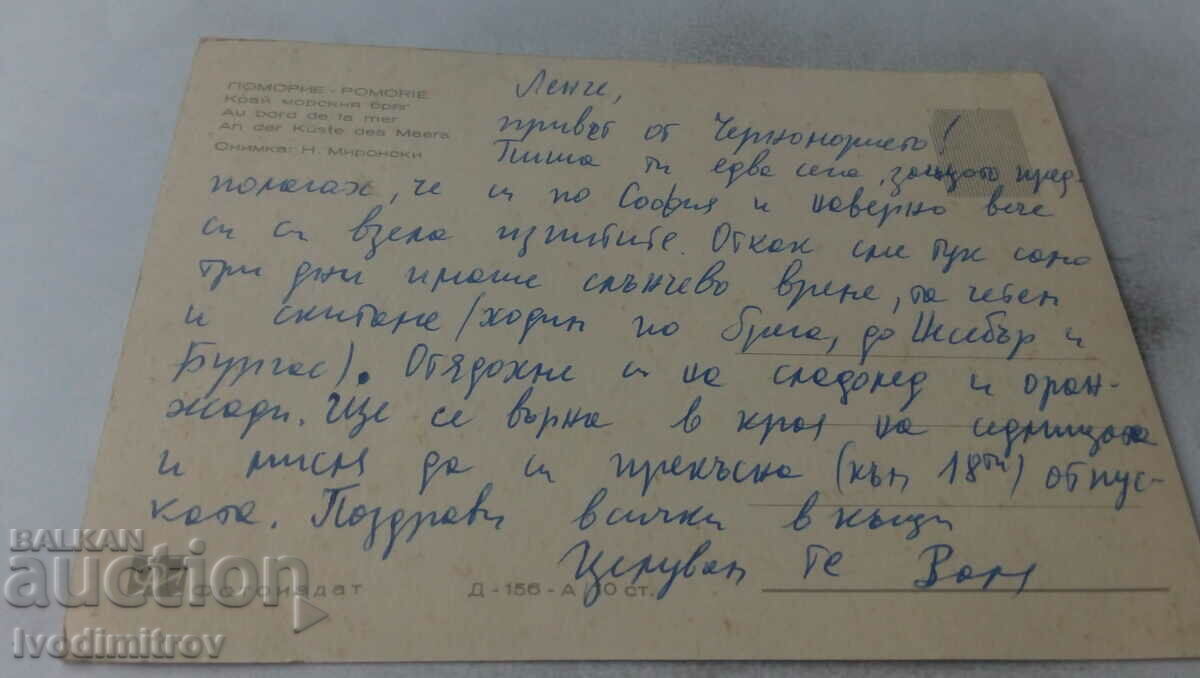 ПОМОРИЕ - POMORIE
Край морския бряг
Au bord de la mer
An der Küste des Meers
Снимка: Н. Миронски
Ленче,
привет от Черноморието!
Пиша ти едва сега, защото пред-
полагах, че си по София и наверно вече
си си взела изпитите. Откак сме тук само
три дни имаше слънчево време, та четем
и скитаме (ходим по брега, до Несебър и
Бургас). Отядохме си на сладолед и оран-
жади. Ще се върна в края на седмицата
и мисля да си прекъсна (към 18ти) отпус-
ката. Поздрави всички вкъщи
Целувам те Ваня
Фотоиздат
Д-156-А 10 ст.
BALKAN
auction
Ivodimitrov